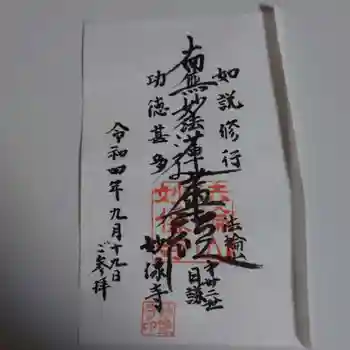 如説修行
南無妙法蓮華経
功徳甚多
法輪山
日謙
妙縁寺
令和四年九月十九日
ご参拝